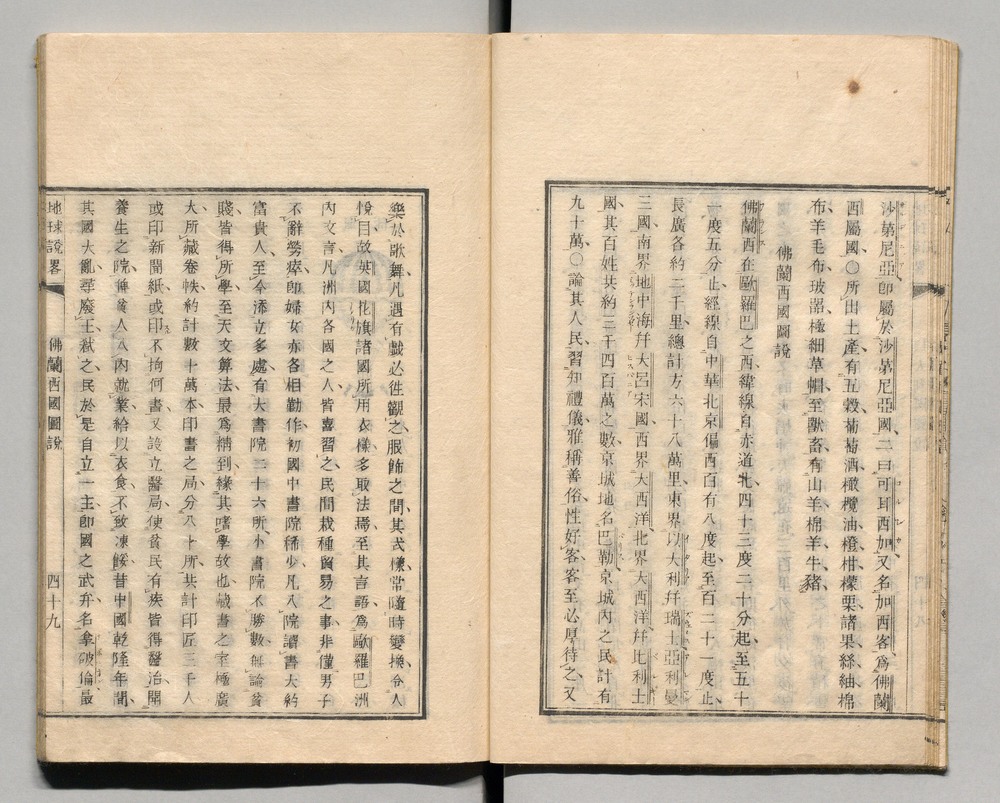 沙第尼亞卽屬於沙第尼亞國二曰可耳西加又名加西客爲佛蘭
西屬國〇所出土產有五穀葡萄酒橄欖油橙柑檬栗諸果絲紬棉
布羊毛布玻器極細草帽至獸畜有山羊棉羊牛豬
佛蘭西國圖說
佛蘭西在歐羅巴之西緯線自赤道北四十三度二十分起至五十
一度五分止經線自中華北京偏西百有八度起至百二十一度止
長廣各約二千里總計方六十八萬里東界以大利幷瑞士亞利曼
三國南界地中海幷大呂宋國西界大西洋北界大西洋幷比利士
國其百姓共約三千四百萬之數京城地名巴勒京城內之民計有
九十萬〇論其人民習知禮儀雅稱善俗性好客客至必厚待之又
樂於歌舞凡遇有戲必往觀之服飾之間其式樣常隨時變換令人
悅目故英國花旗諸國所用衣樣多取法焉至其言語爲歐羅巴洲
內文言凡洲內各國之人皆喜習之民間栽種貿易之事非僅男子
不辭勞瘁卽婦女亦各相勤作初國中書院稀少凡入院讀書大約
富貴人至今添立多處有大書院二十六所小書院不勝數無論貧
賤皆得所學至天文算法最爲精到緣其嗜學故也藏書之室極廣
大所藏卷帙約計數十萬本印書之局分八十所共計印匠三千人
或印新聞紙或印不拘何書又設立醫局使貧民有疾皆得醫治開
養生之院俾貧人入內就業給以衣食不致凍餒昔中國乾隆年間
其國大亂尋廢王弒之民於是自立一主卽國之武弁名拿破倫最
地球說畧 佛蘭西國圖說 四十九